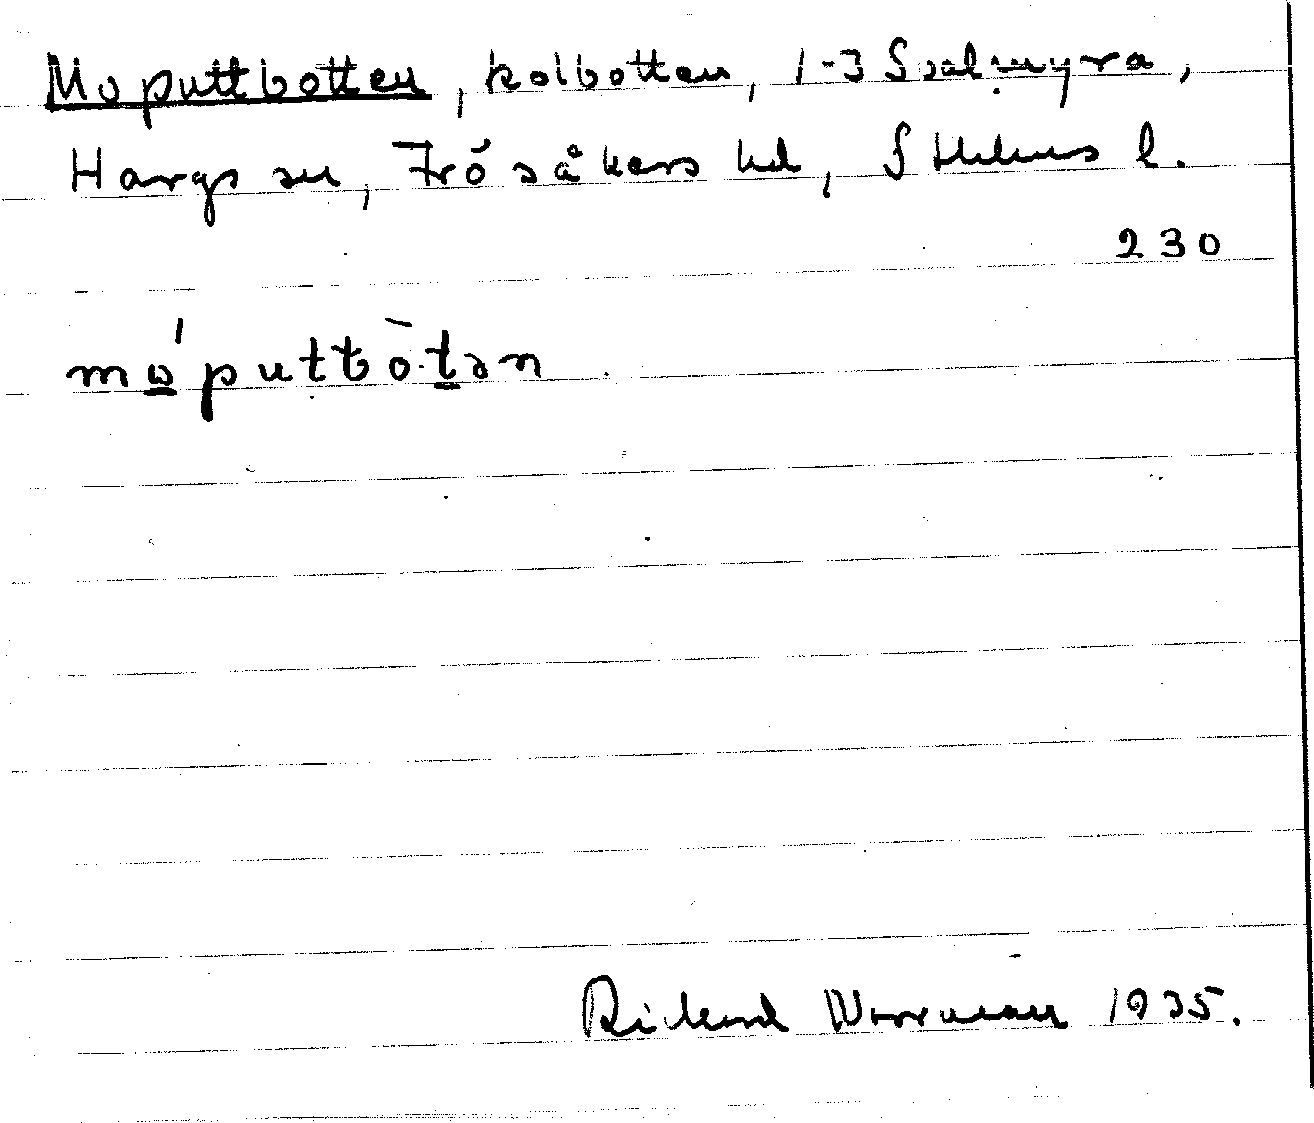 Moputtbotten, kolbotten, 1-3 Sxalmyra,
Hargs sn, Frösåkers hd, Sthlms l.
230
mo̲'puttbò·t̲ən
Rickard Worrman 1935.